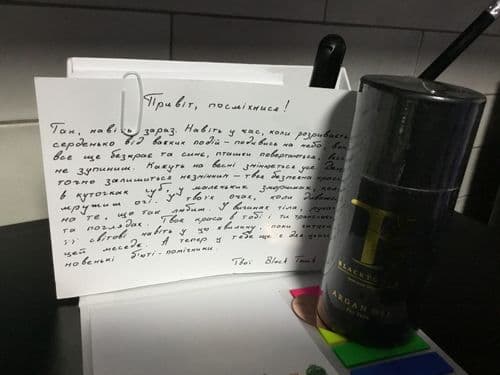 Привіт, посміхнися!
Так, навіть зараз. Навіть у час, коли розриваєть
серденько від важких подій – подивись на небо,
все ще безкрає та синє, пташки повертаються,
не зупиним. Кажуть на весні змінюється усе.
точно залишиться незмінним – твоя безпечна краса
в куточках губ, у маленьких зморшках, коли
мружиш очі. У твоїх очах, коли дивишся
на те, що так любиш. У вигинах тіла, рухах
та поглядах. Твоя краса в тобі і ти транслюєш
її світові навіть у цю хвилину, поки читаєш
цей меседж. А тепер у тебе ще є два
новенькі б'юті-помічники.
Твої Black Touch
T
BLACKTOUCH
ARGAN OIL